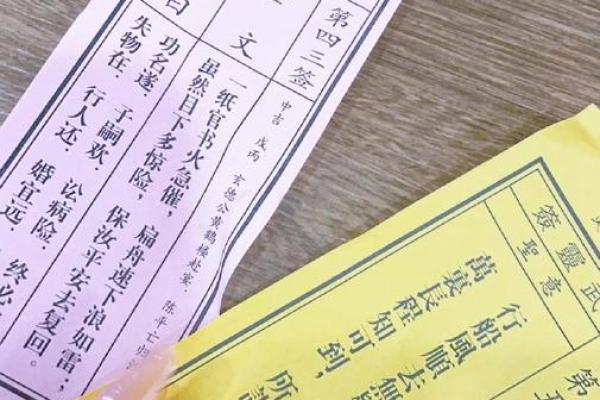 第四三签
文
中吉 戊丙 玄德公黄鹤楼赴宴 陈平亡归
一纸官书火急催，扁舟速下浪如雷；
虽然目下多惊险，保汝平安去复回。
功名遂，子嗣欢，讼病险，终必
失物在，行人还，婚宜远，
武
靈簽
聖意
第五
萬裏長程知可到，所
行船風順去無